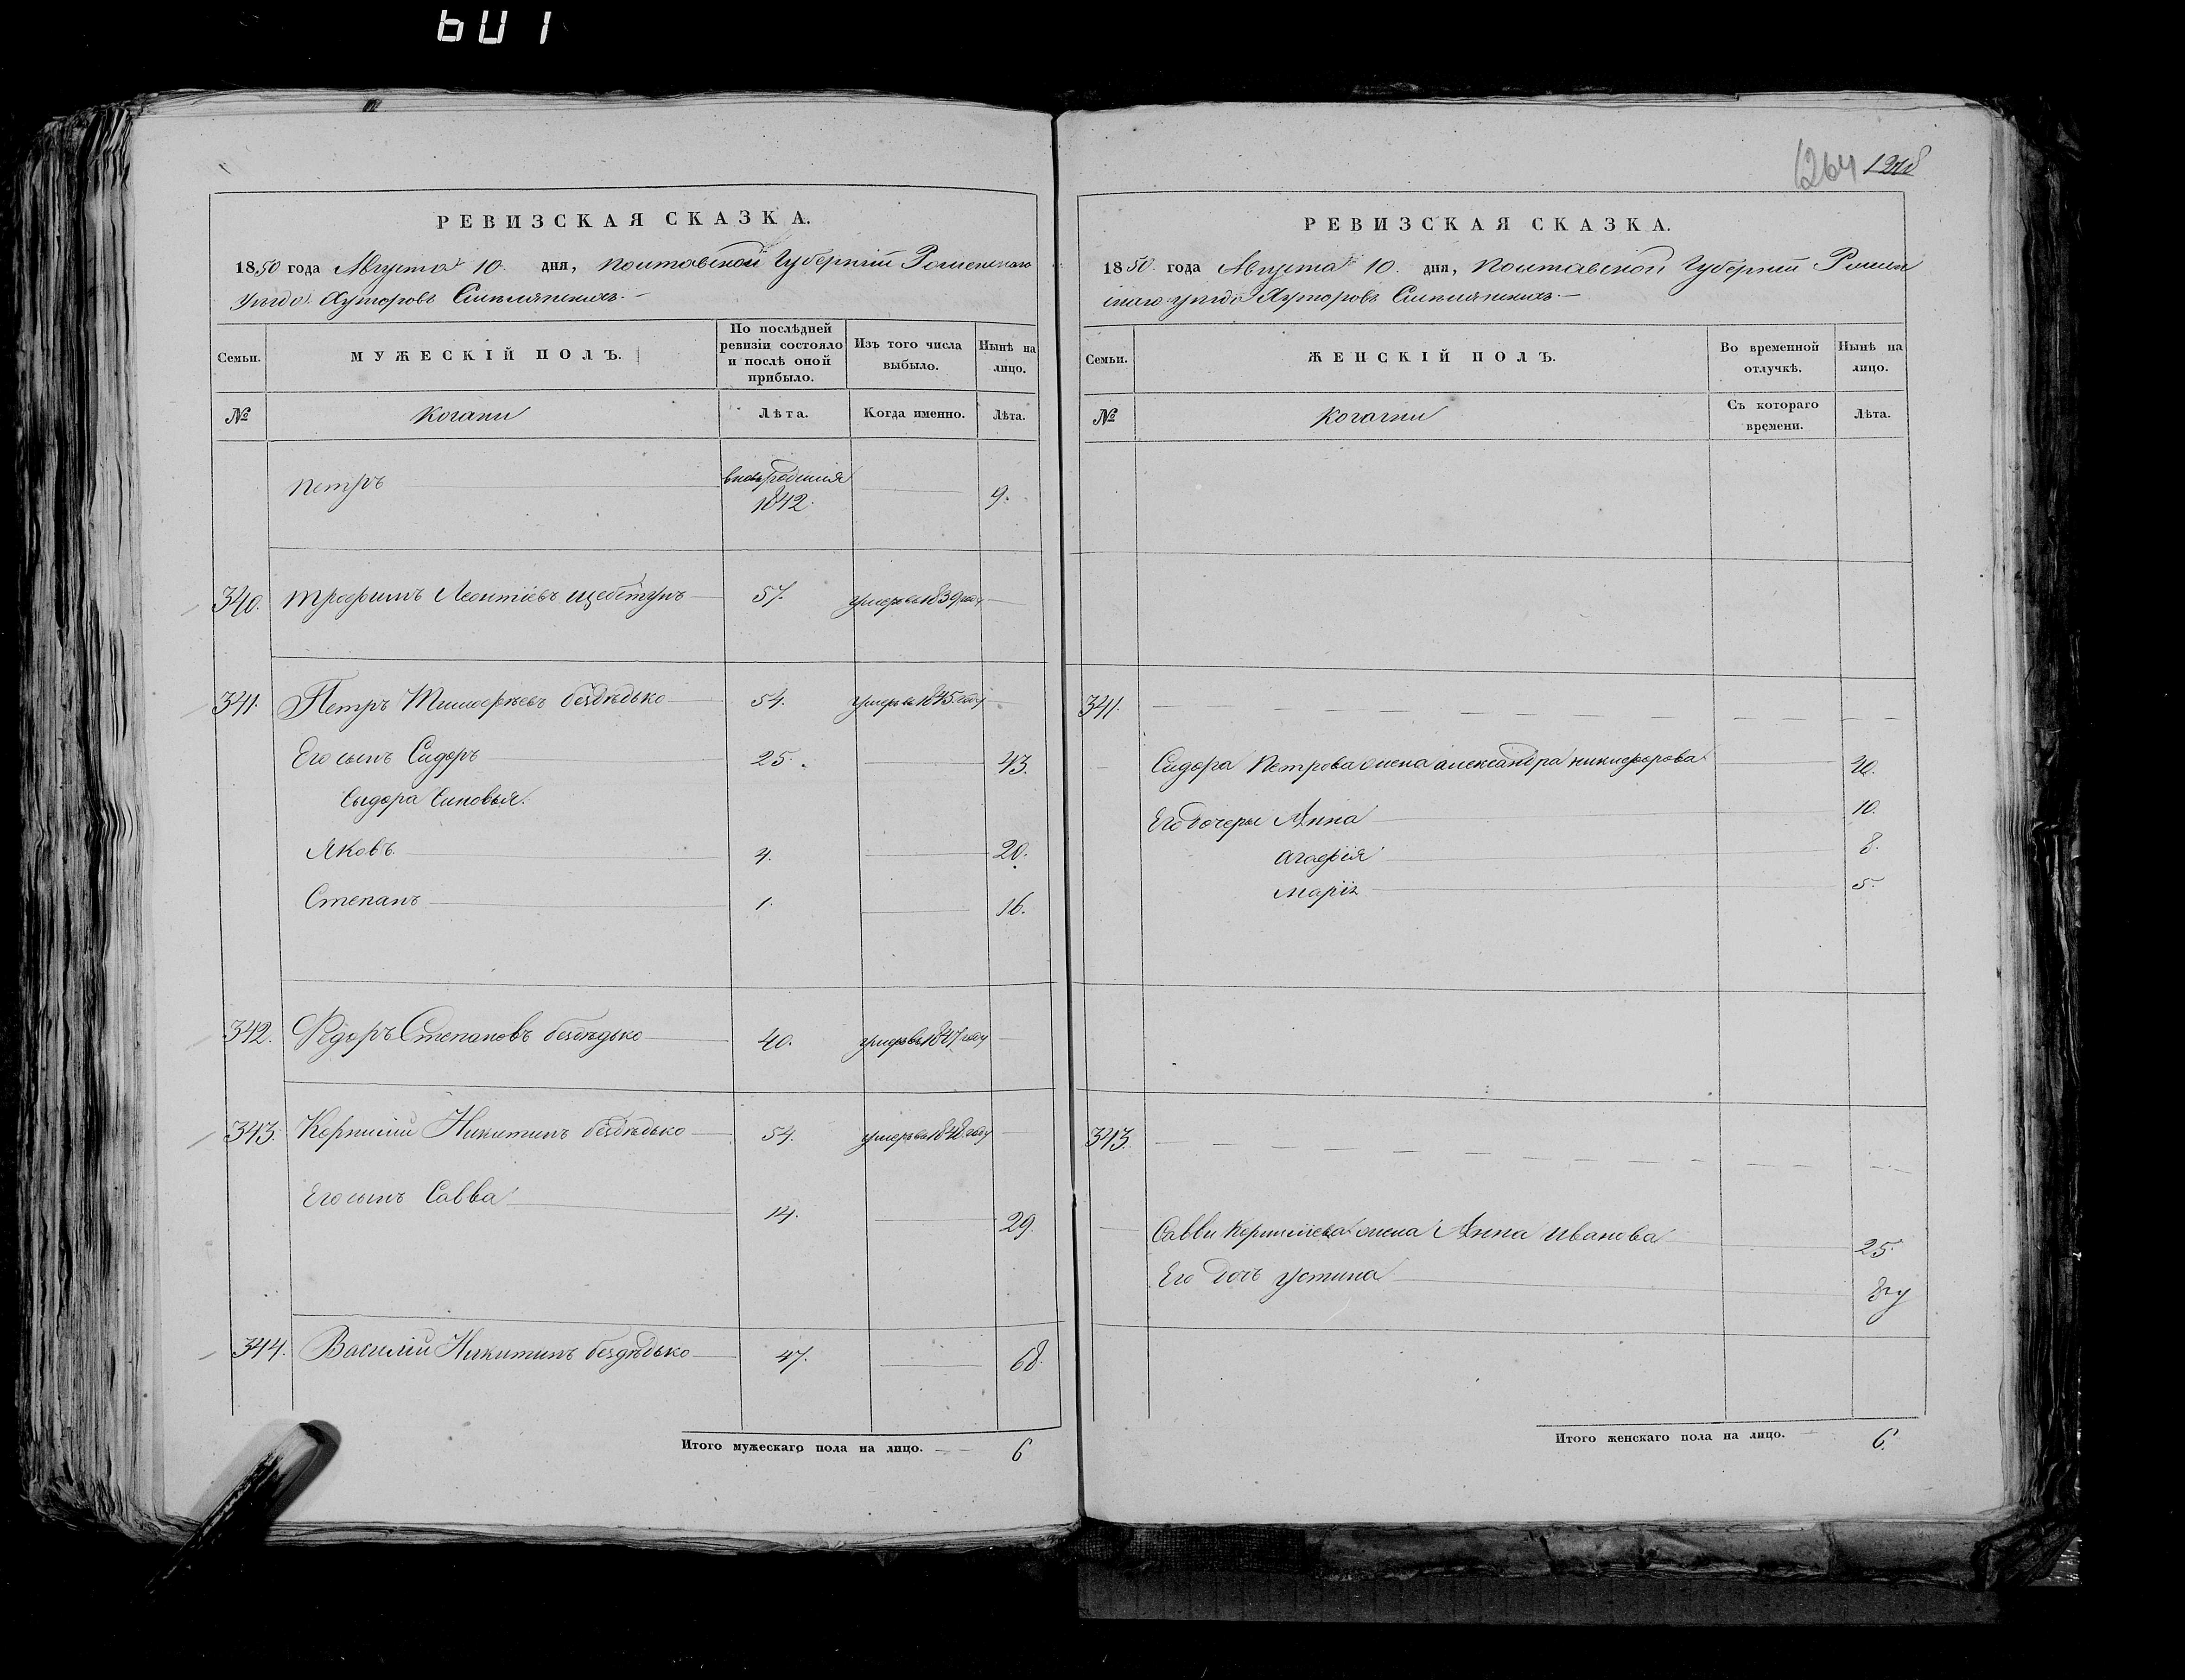 601
1264 1278
РЕВИЗСКАЯ СКАЗКА.
1850 года Августа 10. дня, Полтавской Губерніи Роменскаго
уѣзда Хуторовъ
Семьи.
МУЖЕСКІЙ ПОЛЪ.
По послѣдней ревизіи состояло и послѣ оной прибыло.
Изъ того числа выбыло.
Нынѣ на лицо.
№
Козаки
Лѣта.
Когда именно.
Лѣта.
Петръ 1842 9.
340. Трофимъ Леонтіевъ Щебетунъ 57. умеръ въ 1839 году
341. Петръ Тимофѣевъ Бездѣдько 54. умеръ въ 1845 году
Его сынъ Сидоръ 25. 43.
Сыдора Сыновья.
Яковъ 4. 20.
Степанъ 1. 16.
342. Федоръ Степановъ Бездѣдько 40. умеръ въ 1847 году
343. Корнилій Никитинъ Бездѣдько 54. умеръ въ 1848 году
Его сынъ Савва 14. 29.
344. Василій Никитинъ Бездѣдько 47. 68.
Итого мужескаго пола на лицо. 6
РЕВИЗСКАЯ СКАЗКА.
1850 года Августа 10. дня, Полтавской Губерніи Ромен
скаго уѣзда Хуторовъ
Семьи.
ЖЕНСКІЙ ПОЛЪ.
Во временной отлучкѣ.
Нынѣ на лицо.
№
Козачки
Съ котораго времени.
Лѣта.
341.
Сидора Петрова жена Александра Никифорова 40.
Его дочери Анна 10.
Агафія 8.
Марія 5.
343.
Саввы Корниліева жена Анна Иванова 25.
Его дочь Устина
Итого женскаго пола на лицо. 6.